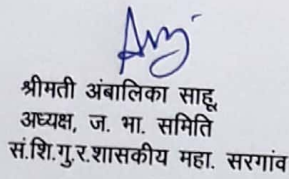 श्रीमती अंबालिका साहू
अध्यक्ष, ज. भा. समिति
सं.शि.गु.र.शासकीय महा. सरगांव